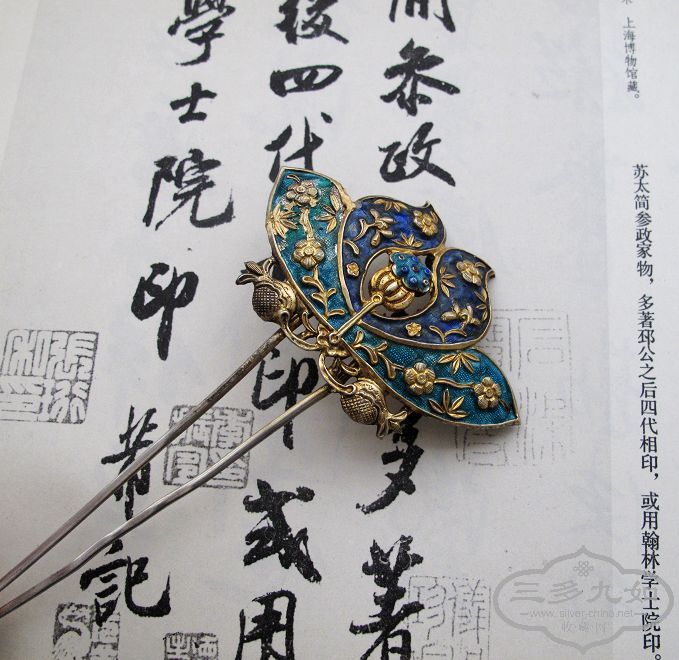 上海博物馆藏。
苏太简参政家物，多著邳公之后四代相印，或用翰林学士院印。
叅政
多著
後四代
印或用
學士院印
芾記
三多九如
www.silver-china.net